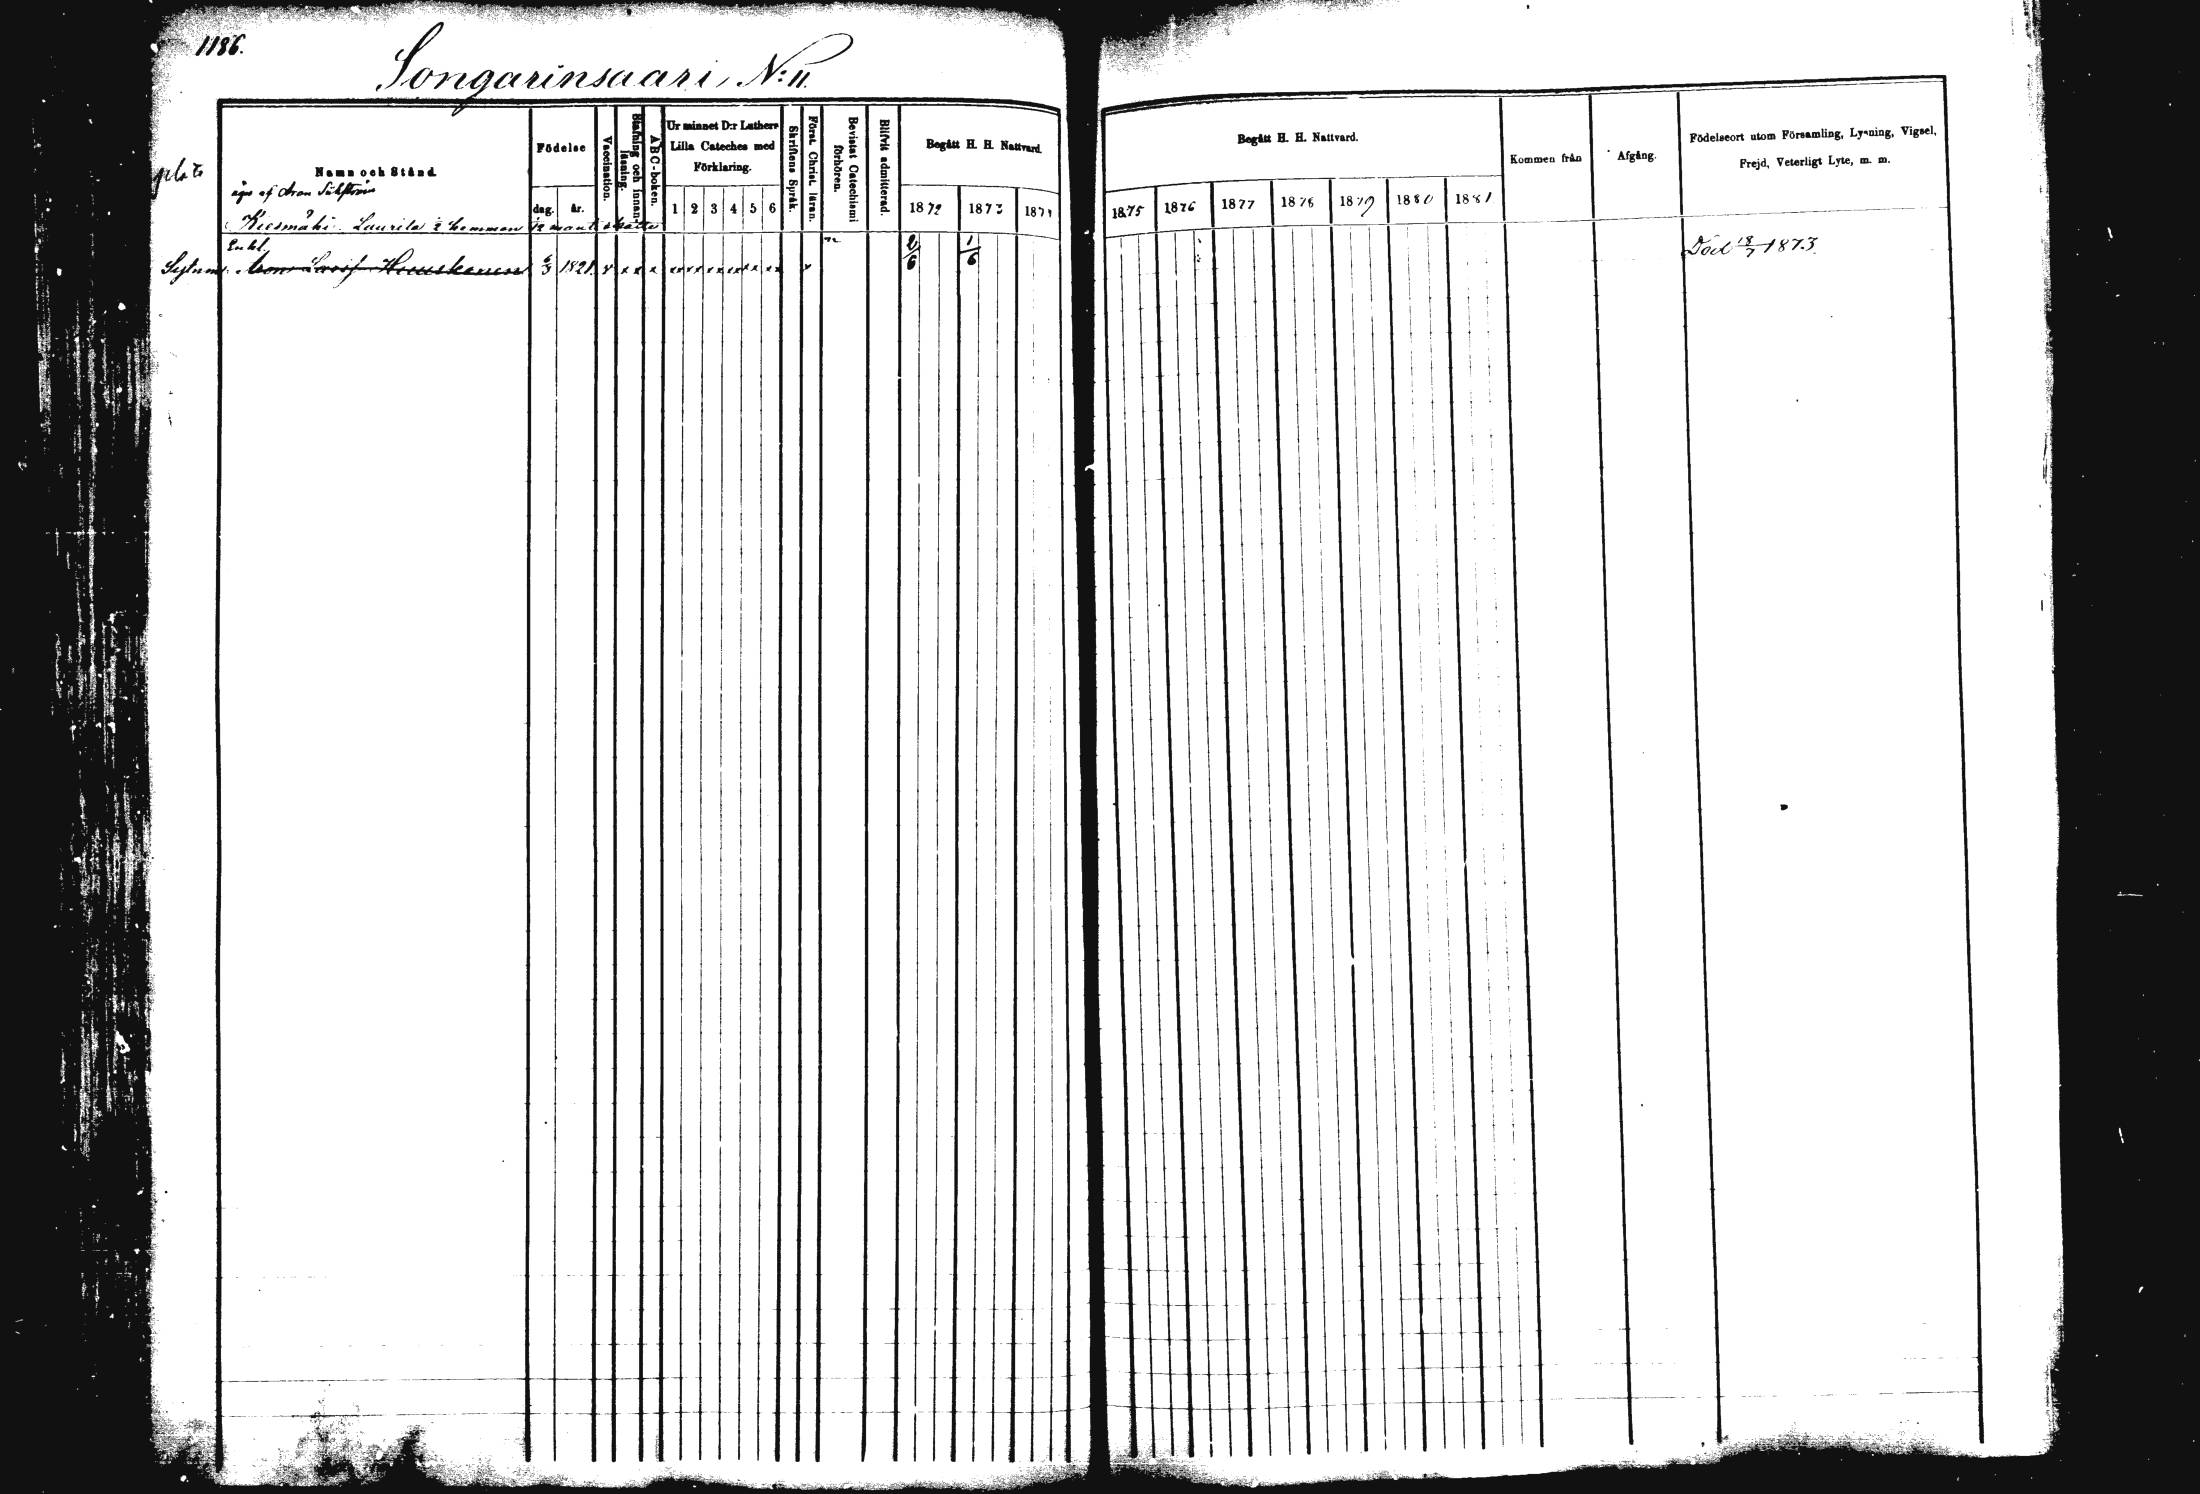 1186.
Songarinsaari, N:11.
Namn och Stånd.
Födelse
dag. år.
Vaccination.
Stafning och innanläsning.
ABC-boken.
Ur minnet D:r Luthers Lilla Cateches med Förklaring.
1 2 3 4 5 6
Skriftens Språk.
Först. Christ. läran.
Bevistat Catechismi förhören.
Blifvit admitterad.
Begått H. H. Nattvard.
1872 1873 1874
Begått H. H. Nattvard.
1875 1876 1877 1878 1879 1880 1881
Kommen från
Afgång.
Födelseort utom Församling, Lysning, Vigsel, Frejd, Veterligt Lyte, m. m.
äges af Aron
Laurila hemman
Enkl.
6/3 1821 2/6 1/6 Död 18/7 1873.